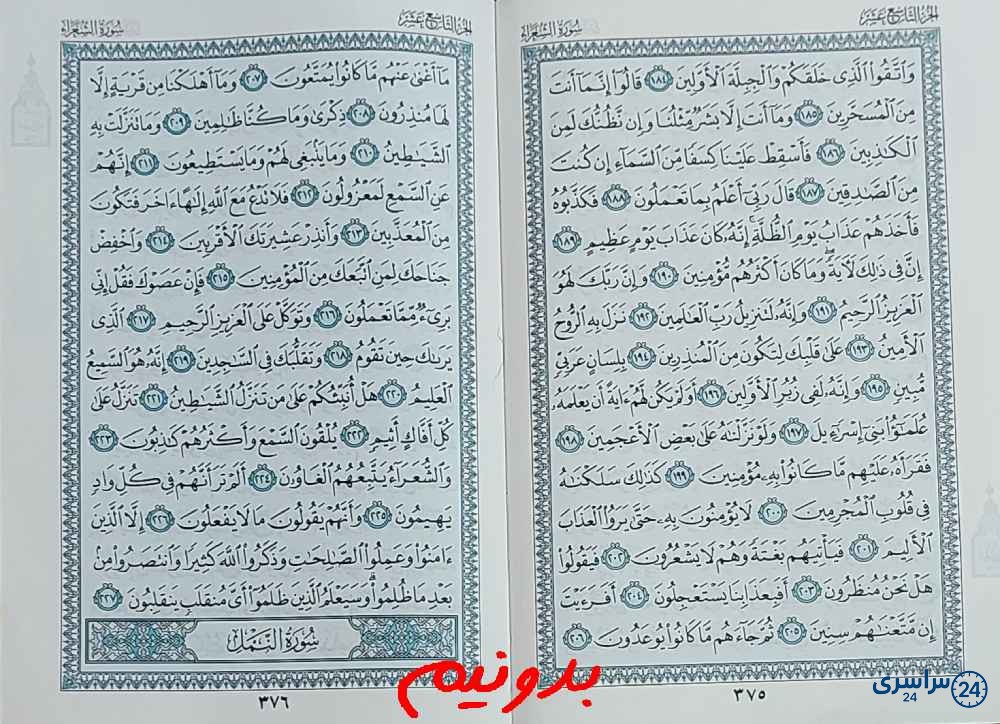 الجزء التاسع عشر
سورة الشعراء
وَٱتَّقُوا۟ ٱلَّذِى خَلَقَكُمْ وَٱلْجِبِلَّةَ ٱلْأَوَّلِينَ ١٨٤ قَالُوٓا۟ إِنَّمَآ أَنتَ
مِنَ ٱلْمُسَحَّرِينَ ١٨٥ وَمَآ أَنتَ إِلَّا بَشَرٌ مِّثْلُنَا وَإِن نَّظُنُّكَ لَمِنَ
ٱلْكَٰذِبِينَ ١٨٦ فَأَسْقِطْ عَلَيْنَا كِسَفًا مِّنَ ٱلسَّمَآءِ إِن كُنتَ
مِنَ ٱلصَّٰدِقِينَ ١٨٧ قَالَ رَبِّىٓ أَعْلَمُ بِمَا تَعْمَلُونَ ١٨٨ فَكَذَّبُوهُ
فَأَخَذَهُمْ عَذَابُ يَوْمِ ٱلظُّلَّةِ إِنَّهُۥ كَانَ عَذَابَ يَوْمٍ عَظِيمٍ ١٨٩
إِنَّ فِى ذَٰلِكَ لَءَايَةً وَمَا كَانَ أَكْثَرُهُم مُّؤْمِنِينَ ١٩٠ وَإِنَّ رَبَّكَ لَهُوَ
ٱلْعَزِيزُ ٱلرَّحِيمُ ١٩١ وَإِنَّهُۥ لَتَنزِيلُ رَبِّ ٱلْعَٰلَمِينَ ١٩٢ نَزَلَ بِهِ ٱلرُّوحُ
ٱلْأَمِينُ ١٩٣ عَلَىٰ قَلْبِكَ لِتَكُونَ مِنَ ٱلْمُنذِرِينَ ١٩٤ بِلِسَانٍ عَرَبِىٍّ
مُّبِينٍ ١٩٥ وَإِنَّهُۥ لَفِى زُبُرِ ٱلْأَوَّلِينَ ١٩٦ أَوَلَمْ يَكُن لَّهُمْ ءَايَةً أَن يَعْلَمَهُۥ
عُلَمَٰٓؤُا۟ بَنِىٓ إِسْرَٰٓءِيلَ ١٩٧ وَلَوْ نَزَّلْنَٰهُ عَلَىٰ بَعْضِ ٱلْأَعْجَمِينَ ١٩٨
فَقَرَأَهُۥ عَلَيْهِم مَّا كَانُوا۟ بِهِۦ مُؤْمِنِينَ ١٩٩ كَذَٰلِكَ سَلَكْنَٰهُ
فِى قُلُوبِ ٱلْمُجْرِمِينَ ٢٠٠ لَا يُؤْمِنُونَ بِهِۦ حَتَّىٰ يَرَوُا۟ ٱلْعَذَابَ
ٱلْأَلِيمَ ٢٠١ فَيَأْتِيَهُم بَغْتَةً وَهُمْ لَا يَشْعُرُونَ ٢٠٢ فَيَقُولُوا۟
هَلْ نَحْنُ مُنظَرُونَ ٢٠٣ أَفَبِعَذَابِنَا يَسْتَعْجِلُونَ ٢٠٤ أَفَرَءَيْتَ
إِن مَّتَّعْنَٰهُمْ سِنِينَ ٢٠٥ ثُمَّ جَآءَهُم مَّا كَانُوا۟ يُوعَدُونَ ٢٠٦
٣٧٥
الجزء التاسع عشر
سورة الشعراء
مَآ أَغْنَىٰ عَنْهُم مَّا كَانُوا۟ يُمَتَّعُونَ ٢٠٧ وَمَآ أَهْلَكْنَا مِن قَرْيَةٍ إِلَّا
لَهَا مُنذِرُونَ ٢٠٨ ذِكْرَىٰ وَمَا كُنَّا ظَٰلِمِينَ ٢٠٩ وَمَا تَنَزَّلَتْ بِهِ
ٱلشَّيَٰطِينُ ٢١٠ وَمَا يَنۢبَغِى لَهُمْ وَمَا يَسْتَطِيعُونَ ٢١١ إِنَّهُمْ
عَنِ ٱلسَّمْعِ لَمَعْزُولُونَ ٢١٢ فَلَا تَدْعُ مَعَ ٱللَّهِ إِلَٰهًا ءَاخَرَ فَتَكُونَ
مِنَ ٱلْمُعَذَّبِينَ ٢١٣ وَأَنذِرْ عَشِيرَتَكَ ٱلْأَقْرَبِينَ ٢١٤ وَٱخْفِضْ
جَنَاحَكَ لِمَنِ ٱتَّبَعَكَ مِنَ ٱلْمُؤْمِنِينَ ٢١٥ فَإِنْ عَصَوْكَ فَقُلْ إِنِّى
بَرِىٓءٌ مِّمَّا تَعْمَلُونَ ٢١٦ وَتَوَكَّلْ عَلَى ٱلْعَزِيزِ ٱلرَّحِيمِ ٢١٧ ٱلَّذِى
يَرَىٰكَ حِينَ تَقُومُ ٢١٨ وَتَقَلُّبَكَ فِى ٱلسَّٰجِدِينَ ٢١٩ إِنَّهُۥ هُوَ ٱلسَّمِيعُ
ٱلْعَلِيمُ ٢٢٠ هَلْ أُنَبِّئُكُمْ عَلَىٰ مَن تَنَزَّلُ ٱلشَّيَٰطِينُ ٢٢١ تَنَزَّلُ عَلَىٰ
كُلِّ أَفَّاكٍ أَثِيمٍ ٢٢٢ يُلْقُونَ ٱلسَّمْعَ وَأَكْثَرُهُمْ كَٰذِبُونَ ٢٢٣
وَٱلشُّعَرَآءُ يَتَّبِعُهُمُ ٱلْغَاوُۥنَ ٢٢٤ أَلَمْ تَرَ أَنَّهُمْ فِى كُلِّ وَادٍ
يَهِيمُونَ ٢٢٥ وَأَنَّهُمْ يَقُولُونَ مَا لَا يَفْعَلُونَ ٢٢٦ إِلَّا ٱلَّذِينَ
ءَامَنُوا۟ وَعَمِلُوا۟ ٱلصَّٰلِحَٰتِ وَذَكَرُوا۟ ٱللَّهَ كَثِيرًا وَٱنتَصَرُوا۟ مِنۢ
بَعْدِ مَا ظُلِمُوا۟ وَسَيَعْلَمُ ٱلَّذِينَ ظَلَمُوٓا۟ أَىَّ مُنقَلَبٍ يَنقَلِبُونَ ٢٢٧
سُورَةُ النَّمْلِ
٣٧٦
بدونیم
سراسری 24
24